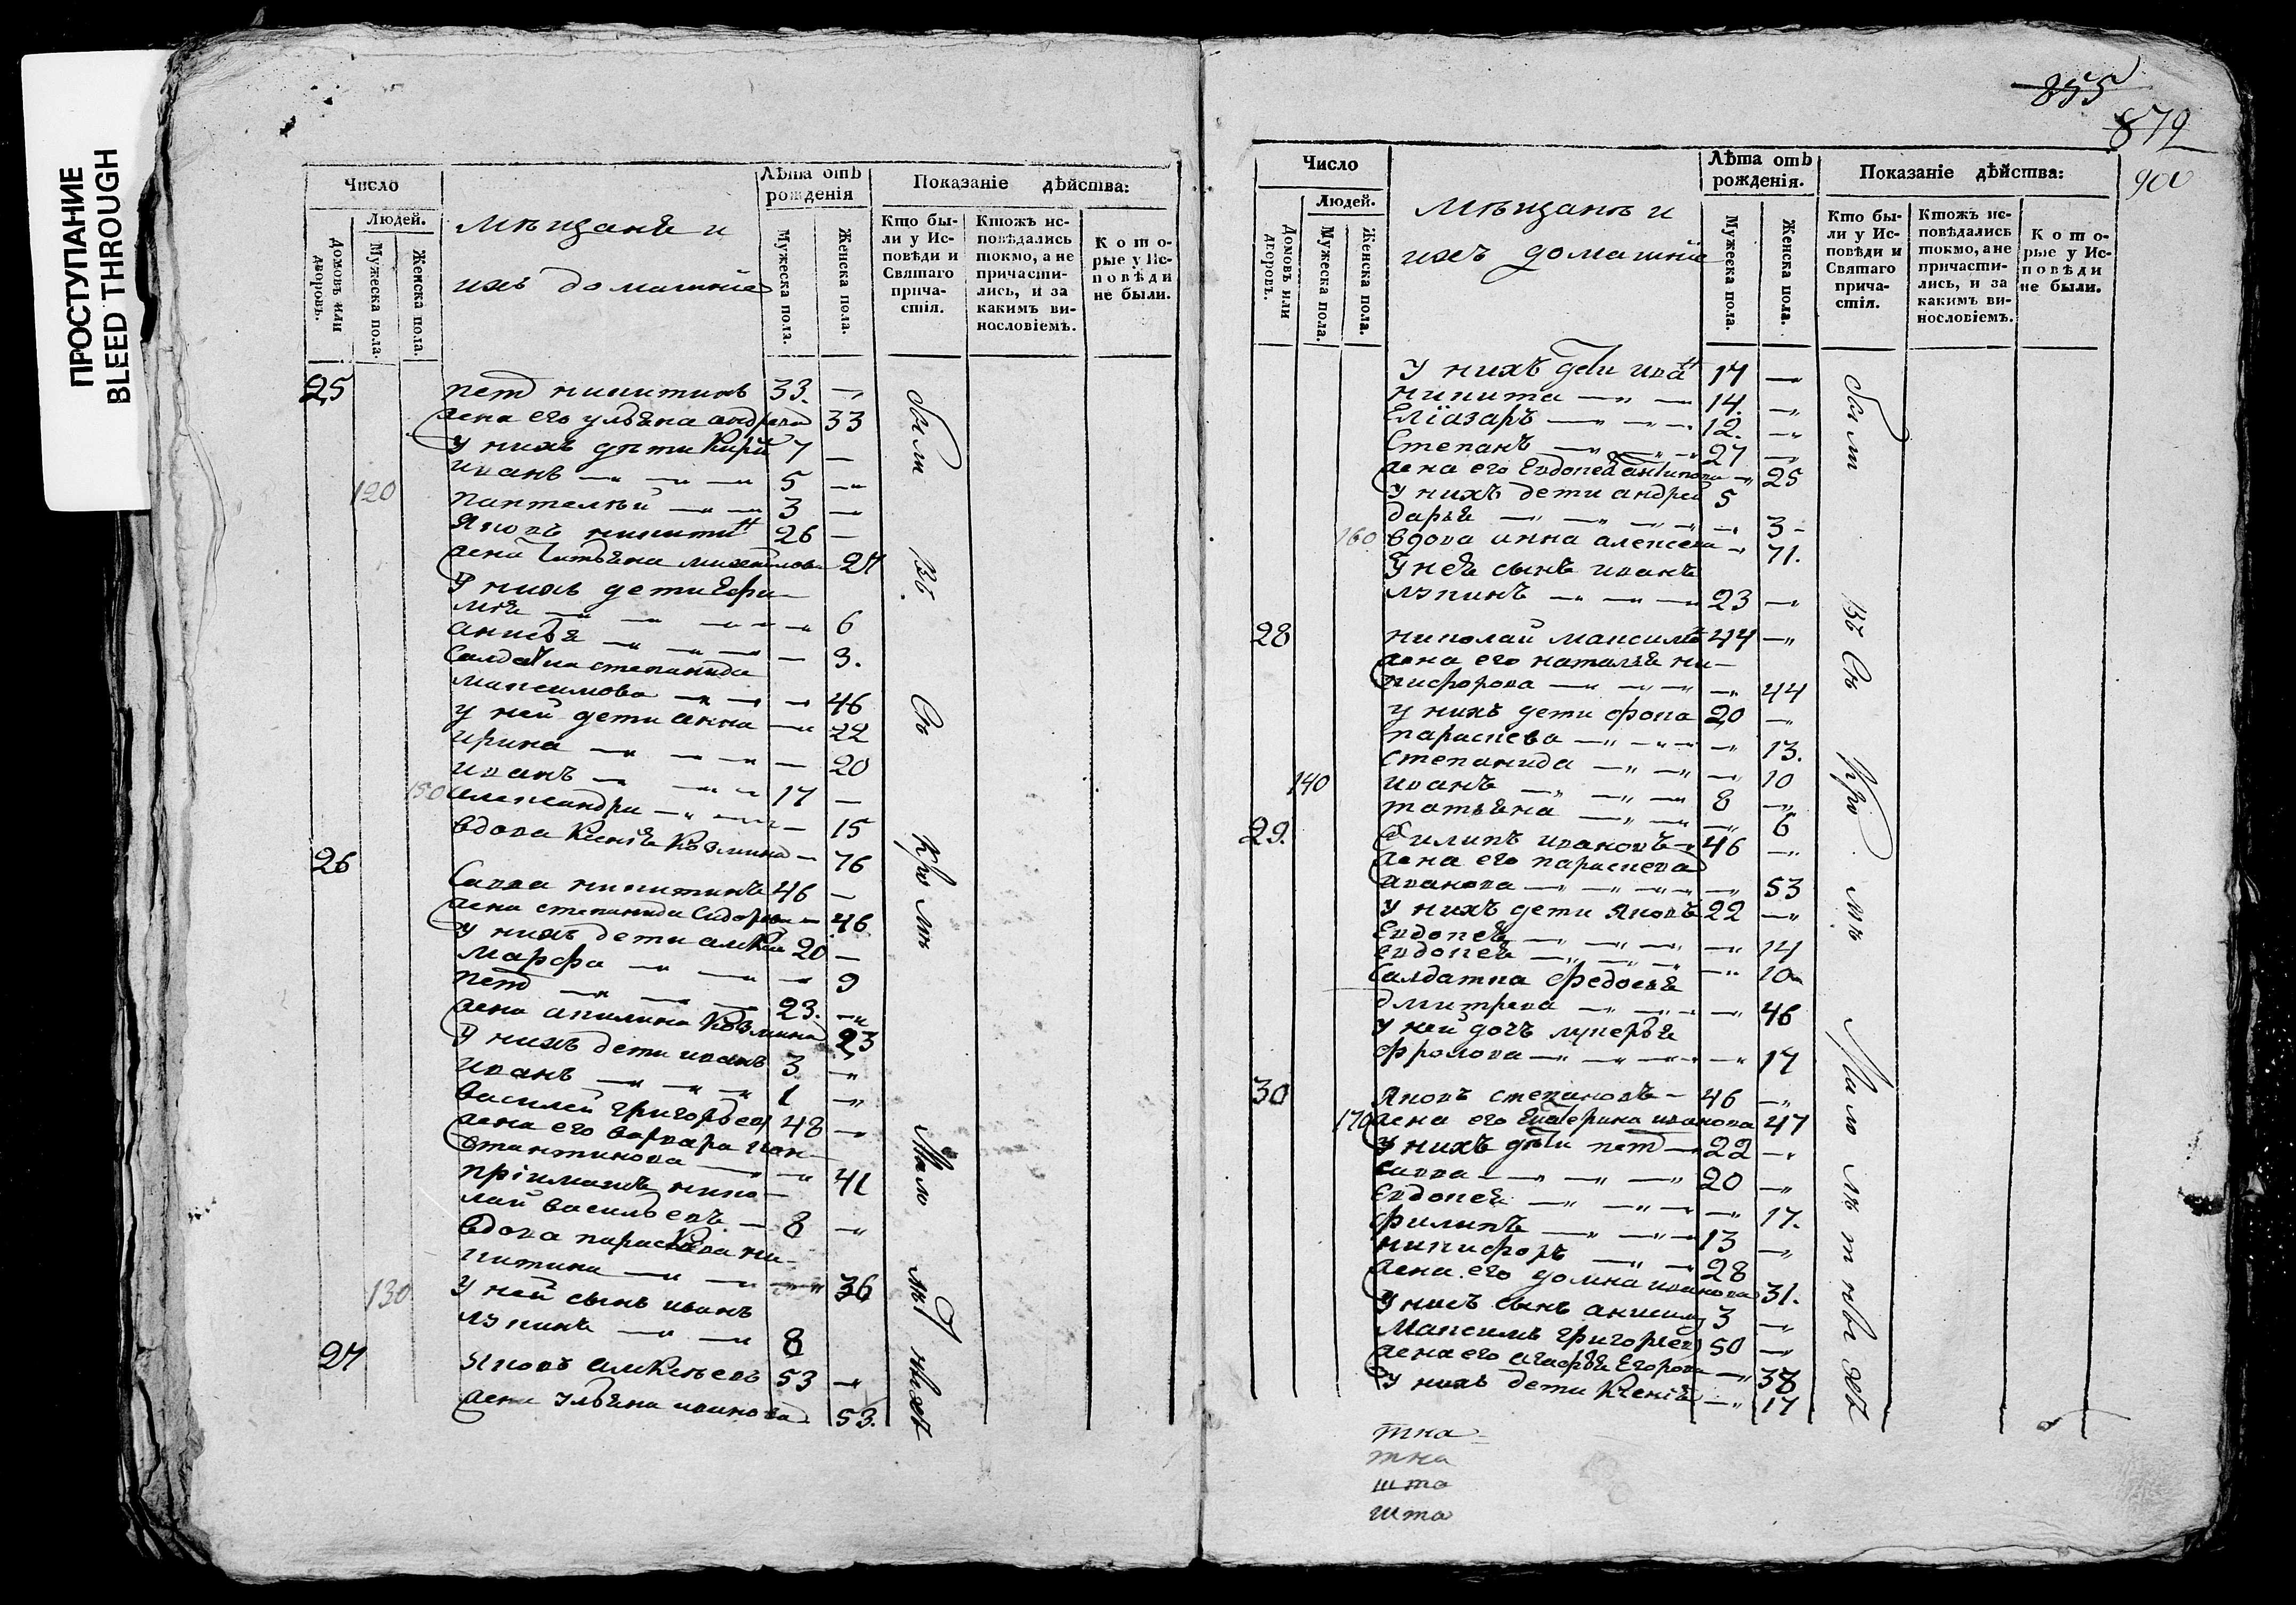 ПРОСТУПАНИЕ
BLEED THROUGH
Число
Людей.
Домовъ или дворовъ.
Мужеска пола.
Женска пола.
мещанѣ и
ихъ домашніе
Лѣта отъ рожденія
Мужеска пола.
Женска пола.
Показаніе дѣйства:
Кто были у Исповѣди и Святаго причастія.
Ктожъ исповѣдались токмо, а не причастились, и за какимъ винословіемъ.
Которые у Исповѣди не были.
25 петръ никитинъ 33. —
жена его ульяна андреева 33
У нихъ дѣти Кири 7 —
иванъ — — — 5 —
120 пантелѣй — — 3 —
Яковъ никити 26 —
жена Татьяна михаилова 27
У нихъ дети Ефи
мія — — — — 6
анисья — — — — 3.
Салдатка степанида
Максимова — — — 46
у ней дети анна — 22
ирина — — — — 20
иванъ — — — 17 —
150 александра — — — 15
вдова Ксенія Козмина — 76
26 Савва никитинъ 46 —
жена степанида Сидорова — 46
У нихъ дети алкѣи 20 —
Марфа — — — 9
петръ — — — 23. —
жена акилина Козмина 23
У нихъ дети иванъ 3 —
иванъ — — — 1 —
василей григорьев 48 —
жена его варвара кон
стантинова — — 41
пріимашъ нико
лай васильевъ — 8 —
вдова параскева ни
китина — — — 36
130 У ней сынъ иванъ
лукинъ — — 8
27 Яковъ алкѣевъ 53 —
жена ульяна иванова 53.
были
Въ
Св
Про
мъ
Мало
лѣт
нихъ
855
879
900
Число
Людей.
Домовъ или дворовъ.
Мужеска пола.
Женска пола.
Мещанѣ и
ихъ домашніе
Лѣта отъ рожденія.
Мужеска пола.
Женска пола.
Показаніе дѣйства:
Кто были у Исповѣди и Святаго причастія.
Ктожъ исповѣдались токмо, а не причастились, и за какимъ винословіемъ.
Которые у Исповѣди не были.
У нихъ дети ива 17 —
никита — — 14. —
Еліазаръ — — — 12. —
Степанъ — — — 27 —
жена его Евдокеа антипова — 25
У нихъ дети андреи 5
дарья — — — — — 3 —
160 вдова анна алексева — 71.
У неѣ сынъ иванъ
лукинъ — — — 23 —
28 николаи максимо 44 —
жена его наталья ни
кифорова — — — — 44
у нихъ дети фока 20 —
параскева — — — — 13.
степанида — — — 10
140 иванъ — — — 8 —
татьяна — — — — 6
29. Филипъ ивановъ — 46 —
жена его параскева
иванова — — — — — 53
У нихъ дети Яковъ 22 —
Евдокея — — — — 14
Евдокея — — — — 10
Салдатка Федосья
дмитрева — — — — 46
У ней дочь лукерья
Фролова — — — — 17
30 Яковъ степановъ — 46 —
170 жена его Екатерина иванова 47
У нихъ дѣти петръ — 22 —
савва — — — — 20 —
Евдокея — — — — 17.
филипъ — — — 13 —
никифоръ — — 28
жена его домна иванова 31.
У нихъ сынъ анисим 3 —
Максимъ григорьев 50 —
жена его агафья Егорова — 38
У нихъ дети Ксенія — 17
были
Въ Св
Про
мъ
Мало
лѣт
нихъ
тна
тна
шта
шта